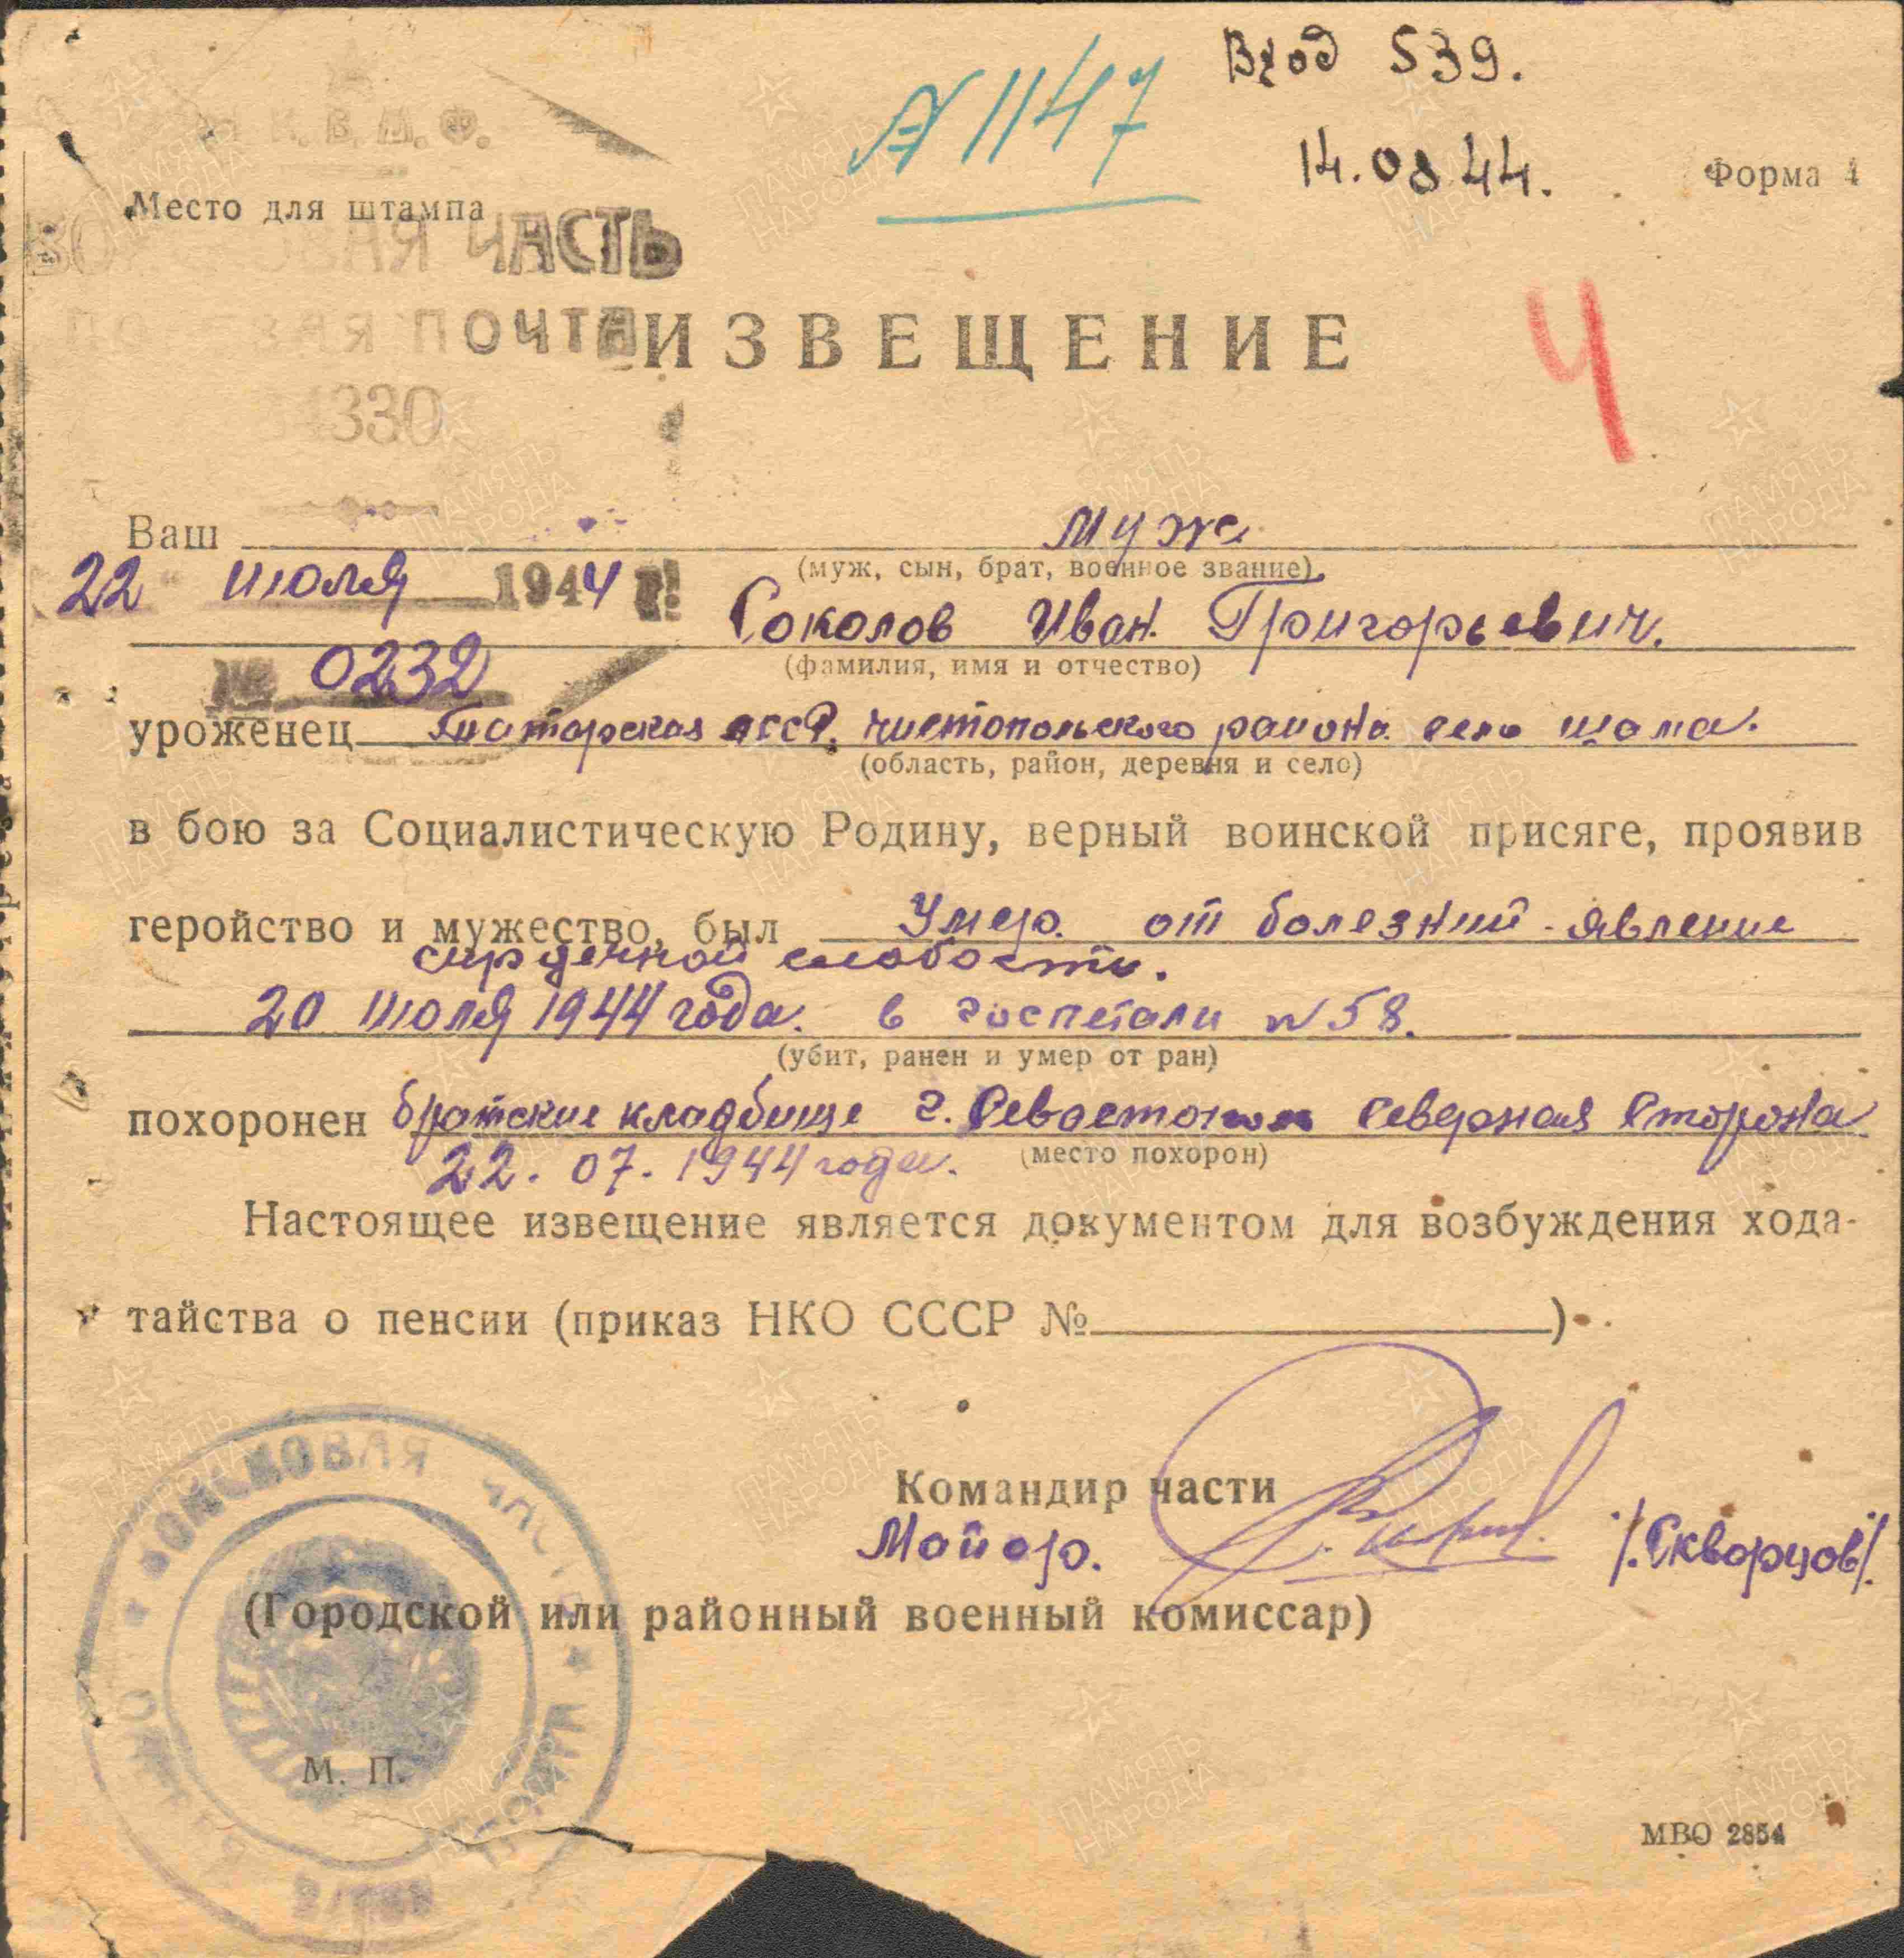 Вход 539.
№ 1147
14.08 44.
Форма 4
К. В. Ч. Ф.
Место для штампа
ЧАСТЬ
ПОЧТА
ИЗВЕЩЕНИЕ
Ч
4330
Ваш муж
(муж, сын, брат, военное звание)
22 " июля 1944 г!
Соколов Иван. Григорьевич.
(фамилия, имя и отчество)
№ 0232
уроженец Таторская АССР. чистопольского района село шама.
(область, район, деревня и село)
в бою за Социалистическую Родину, верный воинской присяге, проявив
геройство и мужество, был Умер. от болезний - явление
сирдечной слабости.
20 июля 1944 года. в госпетали № 58.
(убит, ранен и умер от ран)
похоронен братские кладбище г. Севастополь Северная Сторона
22. 07. 1944 года.
(место похорон)
Настоящее извещение является документом для возбуждения хода-
тайства о пенсии (приказ НКО СССР № )
Командир части
Майор. /.Скворцов/.
(Городской или районный военный комиссар)
ВОЙСКОВАЯ ЧАСТЬ
М. П.
МВО 2854
ПАМЯТЬ НАРОДА